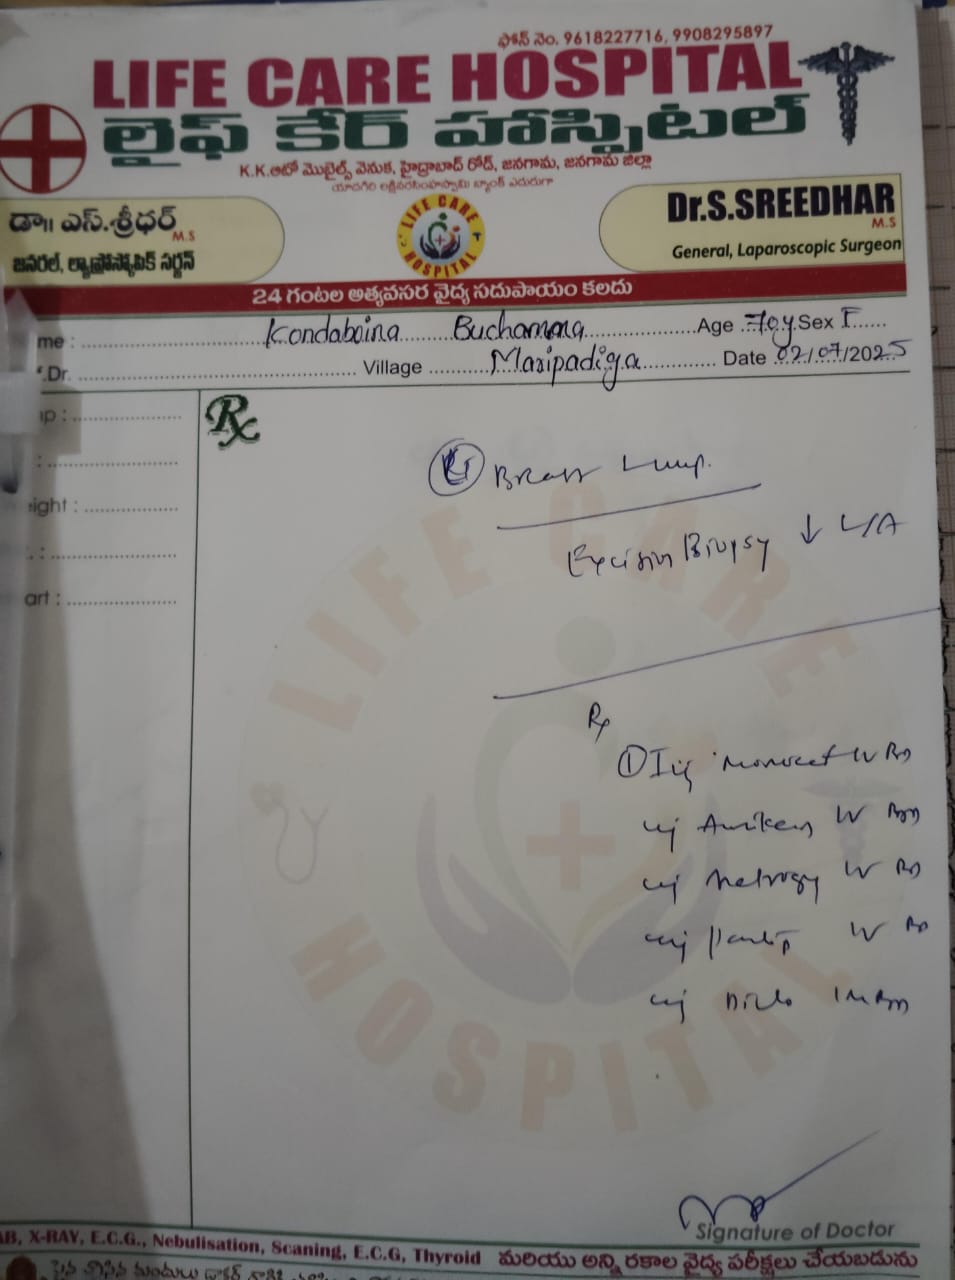 ఫోన్ నెం. 9618227716, 9908295897
LIFE CARE HOSPITAL
లైఫ్ కేర్ హాస్పిటల్
K.K.ఆటో మొబైల్స్ వెనుక, హైద్రాబాద్ రోడ్, జనగామ, జనగామ జిల్లా
యాదగిరి లక్ష్మీనరసింహస్వామి బ్యాంక్ ఎదురుగా
డా॥ ఎస్.శ్రీధర్
M.S
జనరల్, ల్యాప్రోస్కోపిక్ సర్జన్
LIFE CARE
HOSPITAL
Dr.S.SREEDHAR
M.S
General, Laparoscopic Surgeon
24 గంటల అత్యవసర వైద్య సదుపాయం కలదు
me : Kondaboina Buchamma Age 70y Sex F
Dr. Village Maripadiga Date 02/07/2025
Rx
Breast Lump.
Excision Biopsy ↓ L/A
Rx
① Inj Monocef IV BD
inj Amikacin IV BD
inj Metrogyl IV
inj Pantop IV
inj Diclo IM BD
LIFE CARE
HOSPITAL
Signature of Doctor
AB, X-RAY, E.C.G., Nebulisation, Scaning, E.C.G, Thyroid మరియు అన్ని రకాల వైద్య పరీక్షలు చేయబడును